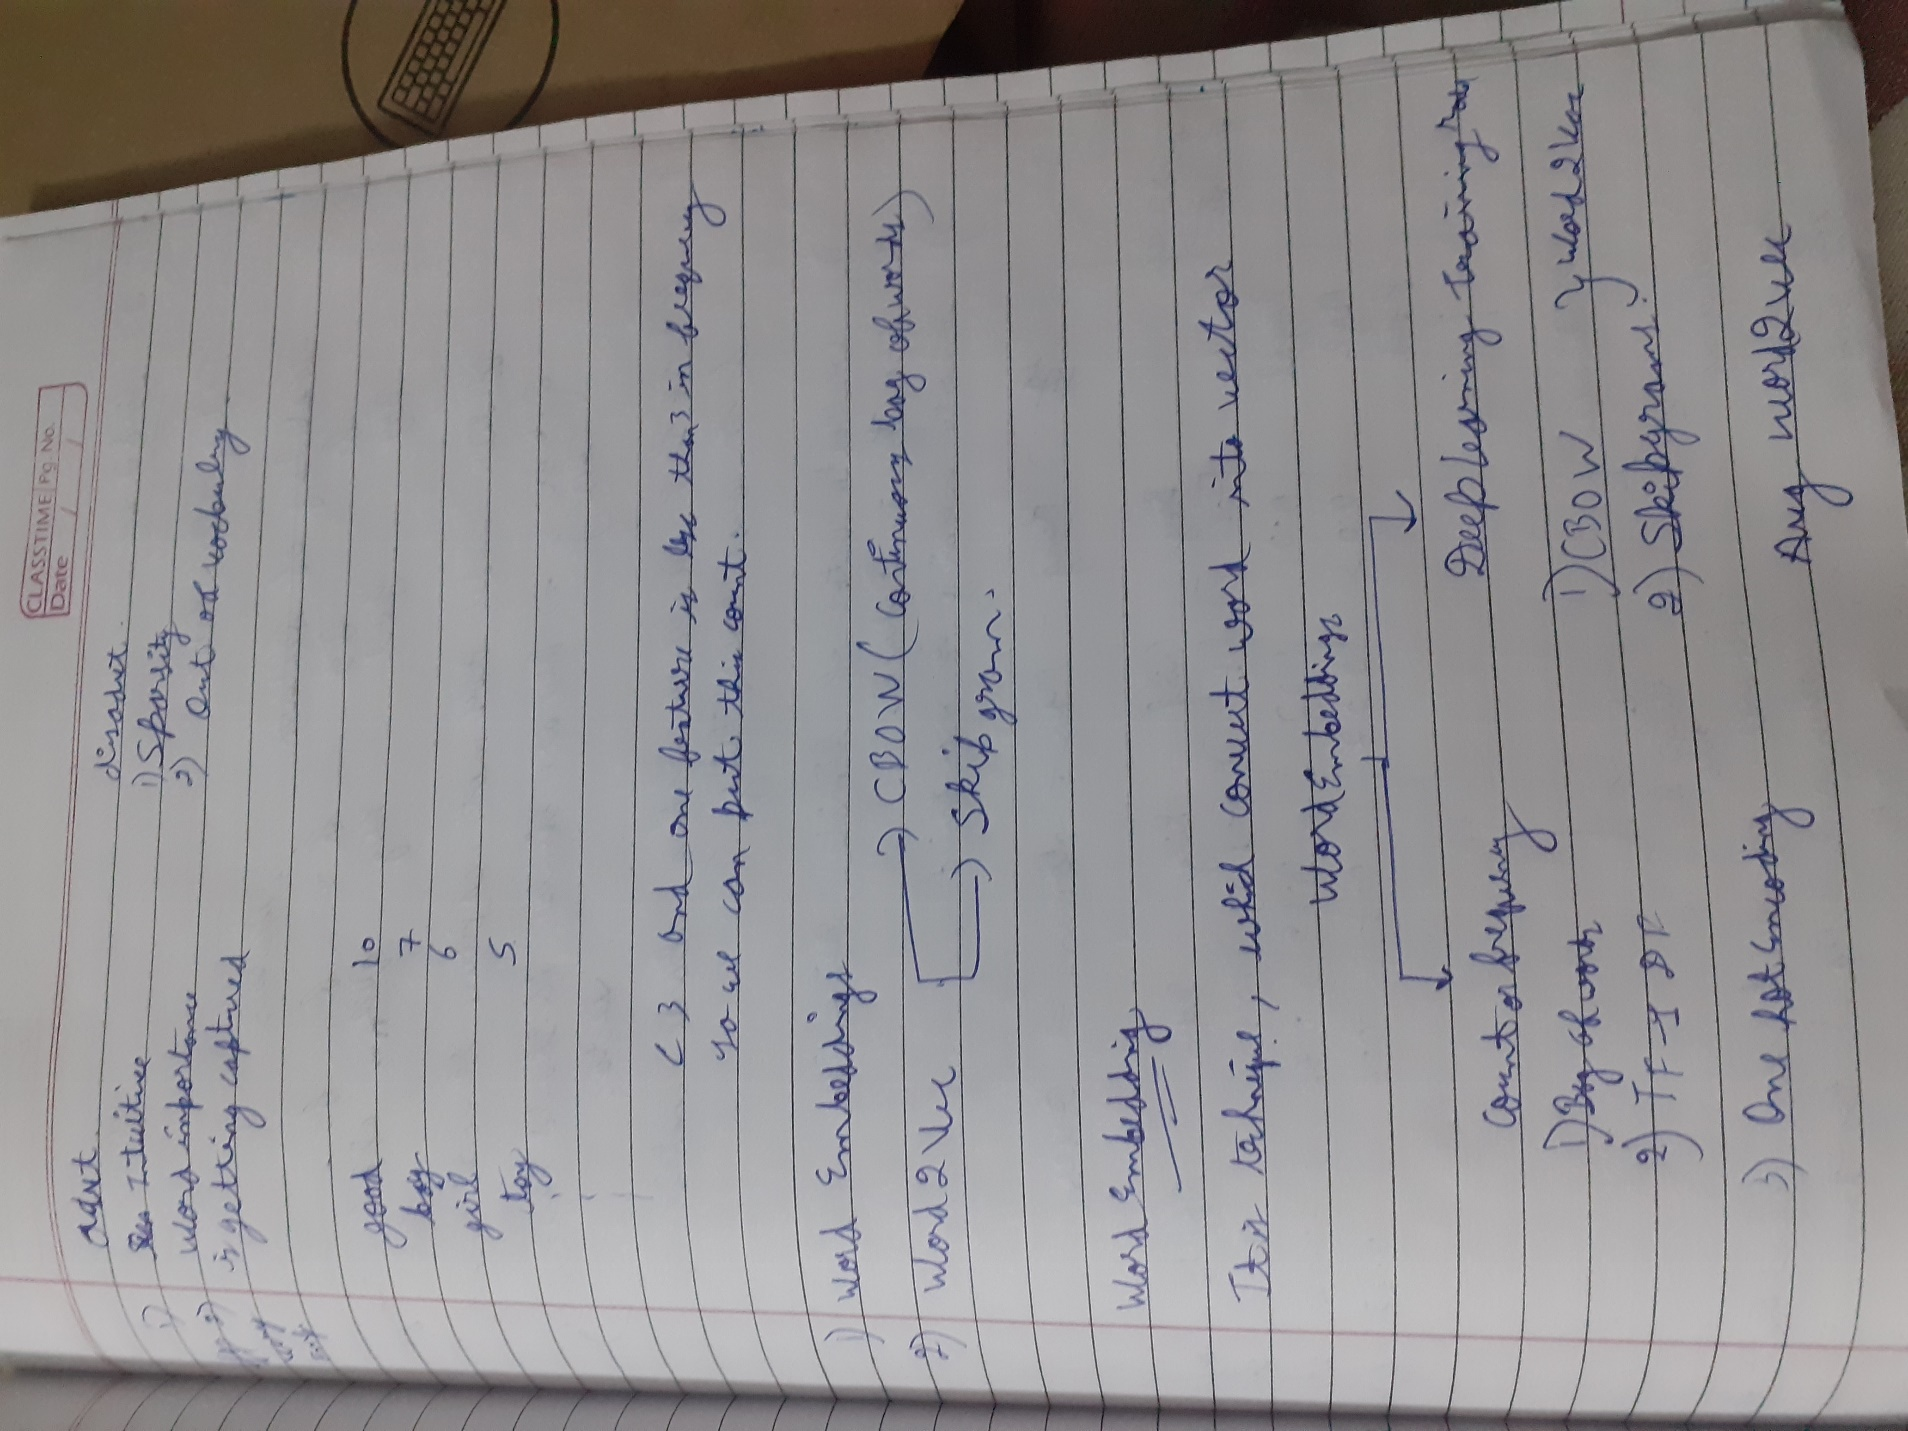 CLASSTIME Pg. No.
Date / /
advt. disadvt.
1) Intuitive 1) Sparsity
2) Word importance 2) Out of vocabulary
is getting captured
good 10
boy 7
girl 6
toy 5
< 3 and one feature is less than 3 in frequency
so we can put this count.
1) Word Embeddings
2) Word2Vec → CBOW (Continuous bag of words)
→ Skip gram.
Word Embedding
It is technique, which convert word into vector
Word Embeddings
Count or frequency Deep learning Training
1) Bag of words 1) CBOW } Word2Vec
2) TF-IDF 2) Skipgrams
3) One hot encoding
Avg word2vec